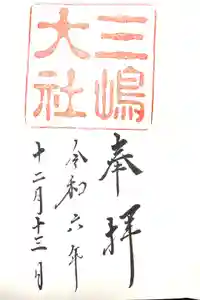 三嶋
大社
奉拝
令和六年
十二月十三日